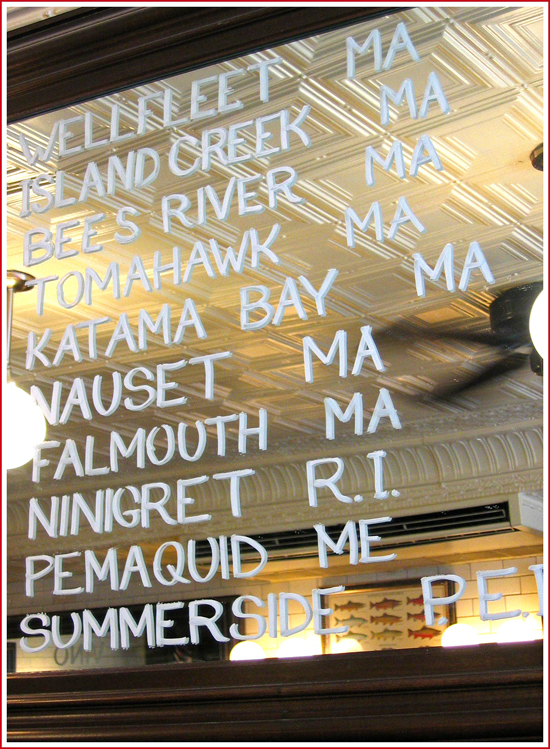 WELLFLEET MA
ISLAND CREEK MA
BEES RIVER MA
TOMAHAWK MA
KATAMA BAY MA
NAUSET MA
FALMOUTH MA
NINIGRET R.I.
PEMAQUID ME
SUMMERSIDE P.E.I